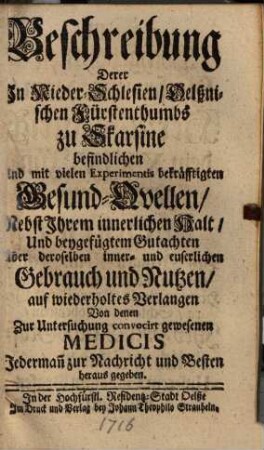 Beschreibung
Derer
In Nieder-Schlesien/Oelßni-
schen Fürstenthumbs
zu Skarsine
befindlichen
Und mit vielen Experimentis bekräfftigten
Gesund-Qvellen/
Nebst Ihrem innerlichen Halt/
Und beygefügtem Gutachten
über deroselben inner- und euserlichen
Gebrauch und Nutzen/
auf wiederholtes Verlangen
Von denen
Zur Untersuchung convocirt gewesenen
MEDICIS
Jedermañ zur Nachricht und Besten
heraus gegeben.
In der Hochfürstl. Residentz-Stadt Oelße
Im Druck und Verlag bey Johann Theophilo Straubeln.
1716